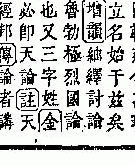 立名始于兹矣
增韻紬繹討論
魯勃極烈國論
也又三字姓金
必卽天論註天
經邦傳論者講